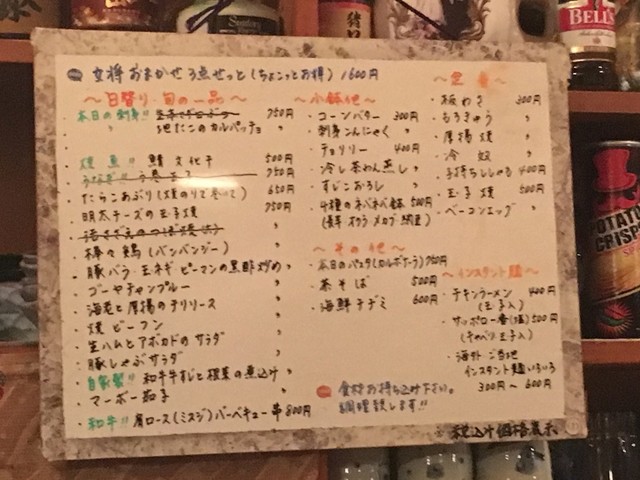 女将おまかせ3点せっと(ちょこっとお得) 1600円
〜日替り・旬の一品〜
・本日の刺身!! 750円
・〃 地だこのカルパッチョ 〃
・焼魚!! 鯖文化干 500円
・うなぎ!! う巻玉子 750円
・たらこあぶり(焼のりで巻いて) 650円
・明太チーズの玉子焼 750円
・活さざえのつぼ焼
・棒々鶏(バンバンジー) 〃
・豚バラ玉ネギピーマンの黒酢炒め 〃
・ゴーヤチャンプルー 〃
・海老と厚揚のチリソース 〃
・焼ビーフン 〃
・生ハムとアボカドのサラダ 〃
・豚しゃぶサラダ 〃
・自家製!! 和牛牛すじと根菜の煮込み 〃
・マーボー茄子 〃
・和牛!! 肩ロース(ミスジ)バーベキュー串 800円
〜小鉢他〜
・コーンバター 300円
・刺身こんにゃく 〃
・チョリソー 400円
・冷し茶わん蒸し 〃
・すじこおろし 〃
・4種のネバネバ小鉢 500円
(長芋 オクラ メカブ 納豆)
〜その他〜
・本日のパスタ(カルボナーラ) 750円
・茶そば 500円
・海鮮チヂミ 600円
〜定番〜
・板わさ 300円
・もろきゅう 〃
・厚揚焼 〃
・冷奴 〃
・子持ちししゃも 400円
・玉子焼 500円
・ベーコンエッグ 〃
〜インスタント麺〜
・チキンラーメン 400円
(玉子入)
・サッポロ一番(塩) 500円
(キャベツ玉子入)
・海外ご当地
インスタント麺いろいろ
300円〜600円
食材お持ち込み下さい。
調理致します!!
※税込価格表示
BELL'S
POTATO
CRISPS